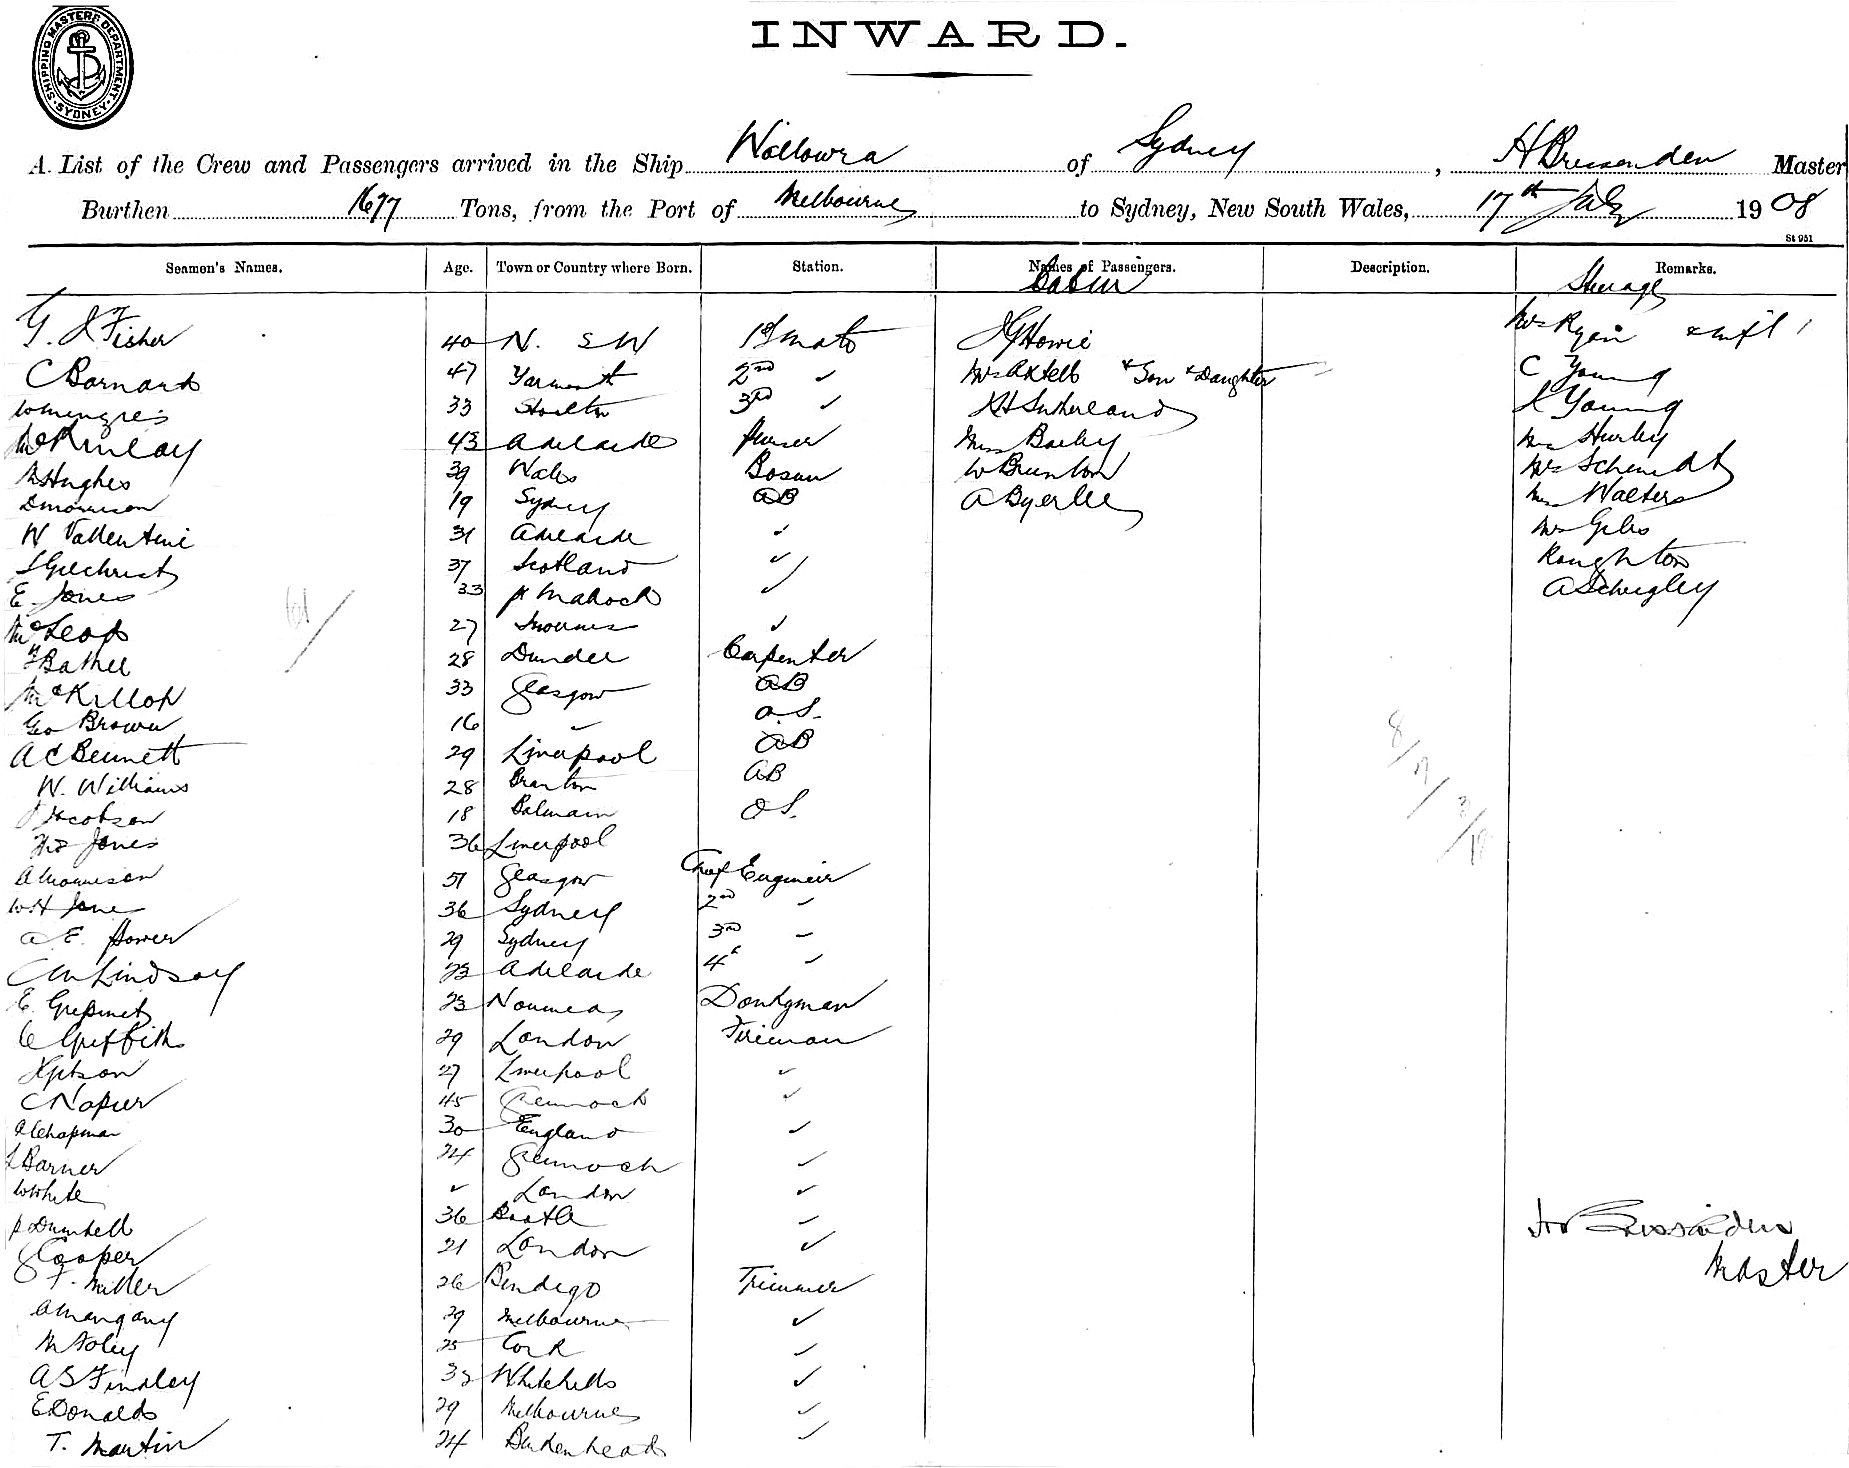 SHIPPING MASTERS DEPARTMENT. SYDNEY
INWARD.
A List of the Crew and Passengers arrived in the Ship Wollowra of Sydney, Master
Burthen 1677 Tons, from the Port of Melbourne to Sydney, New South Wales, 17th July 1908
St 951
Seamen's Names. Age. Town or Country where Born. Station. Names of Passengers. Description. Remarks.
Cabin Steerage
Fisher 40 N. S W 1st mate Howie Mrs Ryan & inft
C Barnard 47 Yarmouth 2nd ✓ Mrs Axtell & Son & Daughter C Young
33 3rd ✓ Sutherland Young
McKinlay 43 Adelaide Purser Bailey Hurley
Hughes 39 Wales Bosun W Brunton Mrs Schmidt
D Morrison 19 Sydney AB A Byerlee Walters
W Vallentine 31 Adelaide ✓ Mrs Giles
Gilchrist 37 Scotland ✓ Roughton
E Jones 33 ✓ A
McLeod 27 ✓
28 Dundee Carpenter
McKillop 33 Glasgow AB
Geo Brown 16 " O.S.
A C Bennett 29 Liverpool AB
W. Williams 28 AB
Jacobson 18 Balmain O S.
Jones 36 Liverpool
A Morrison 51 Glasgow Chief Engineer
W H Jones 36 Sydney 2nd "
A. E. Power 29 Sydney 3rd "
Lindsay 23 Adelaide 4th "
E. 23 Noumea Donkyman
C Griffith 29 London Fireman
27 Liverpool "
C Napier 45 Greenock "
A Chapman 30 England "
Barner 24 Greenock "
W White " London "
P Dumbell 36 Bootle "
Cooper 21 London "
F. Miller 26 Bendigo Trimmer
A Mangany 29 Melbourne "
M Foley 25 Cork "
A S Findley 33 Whitehills "
E Donalds 29 Melbourne "
T. Martin 24 Birkenhead "
Master